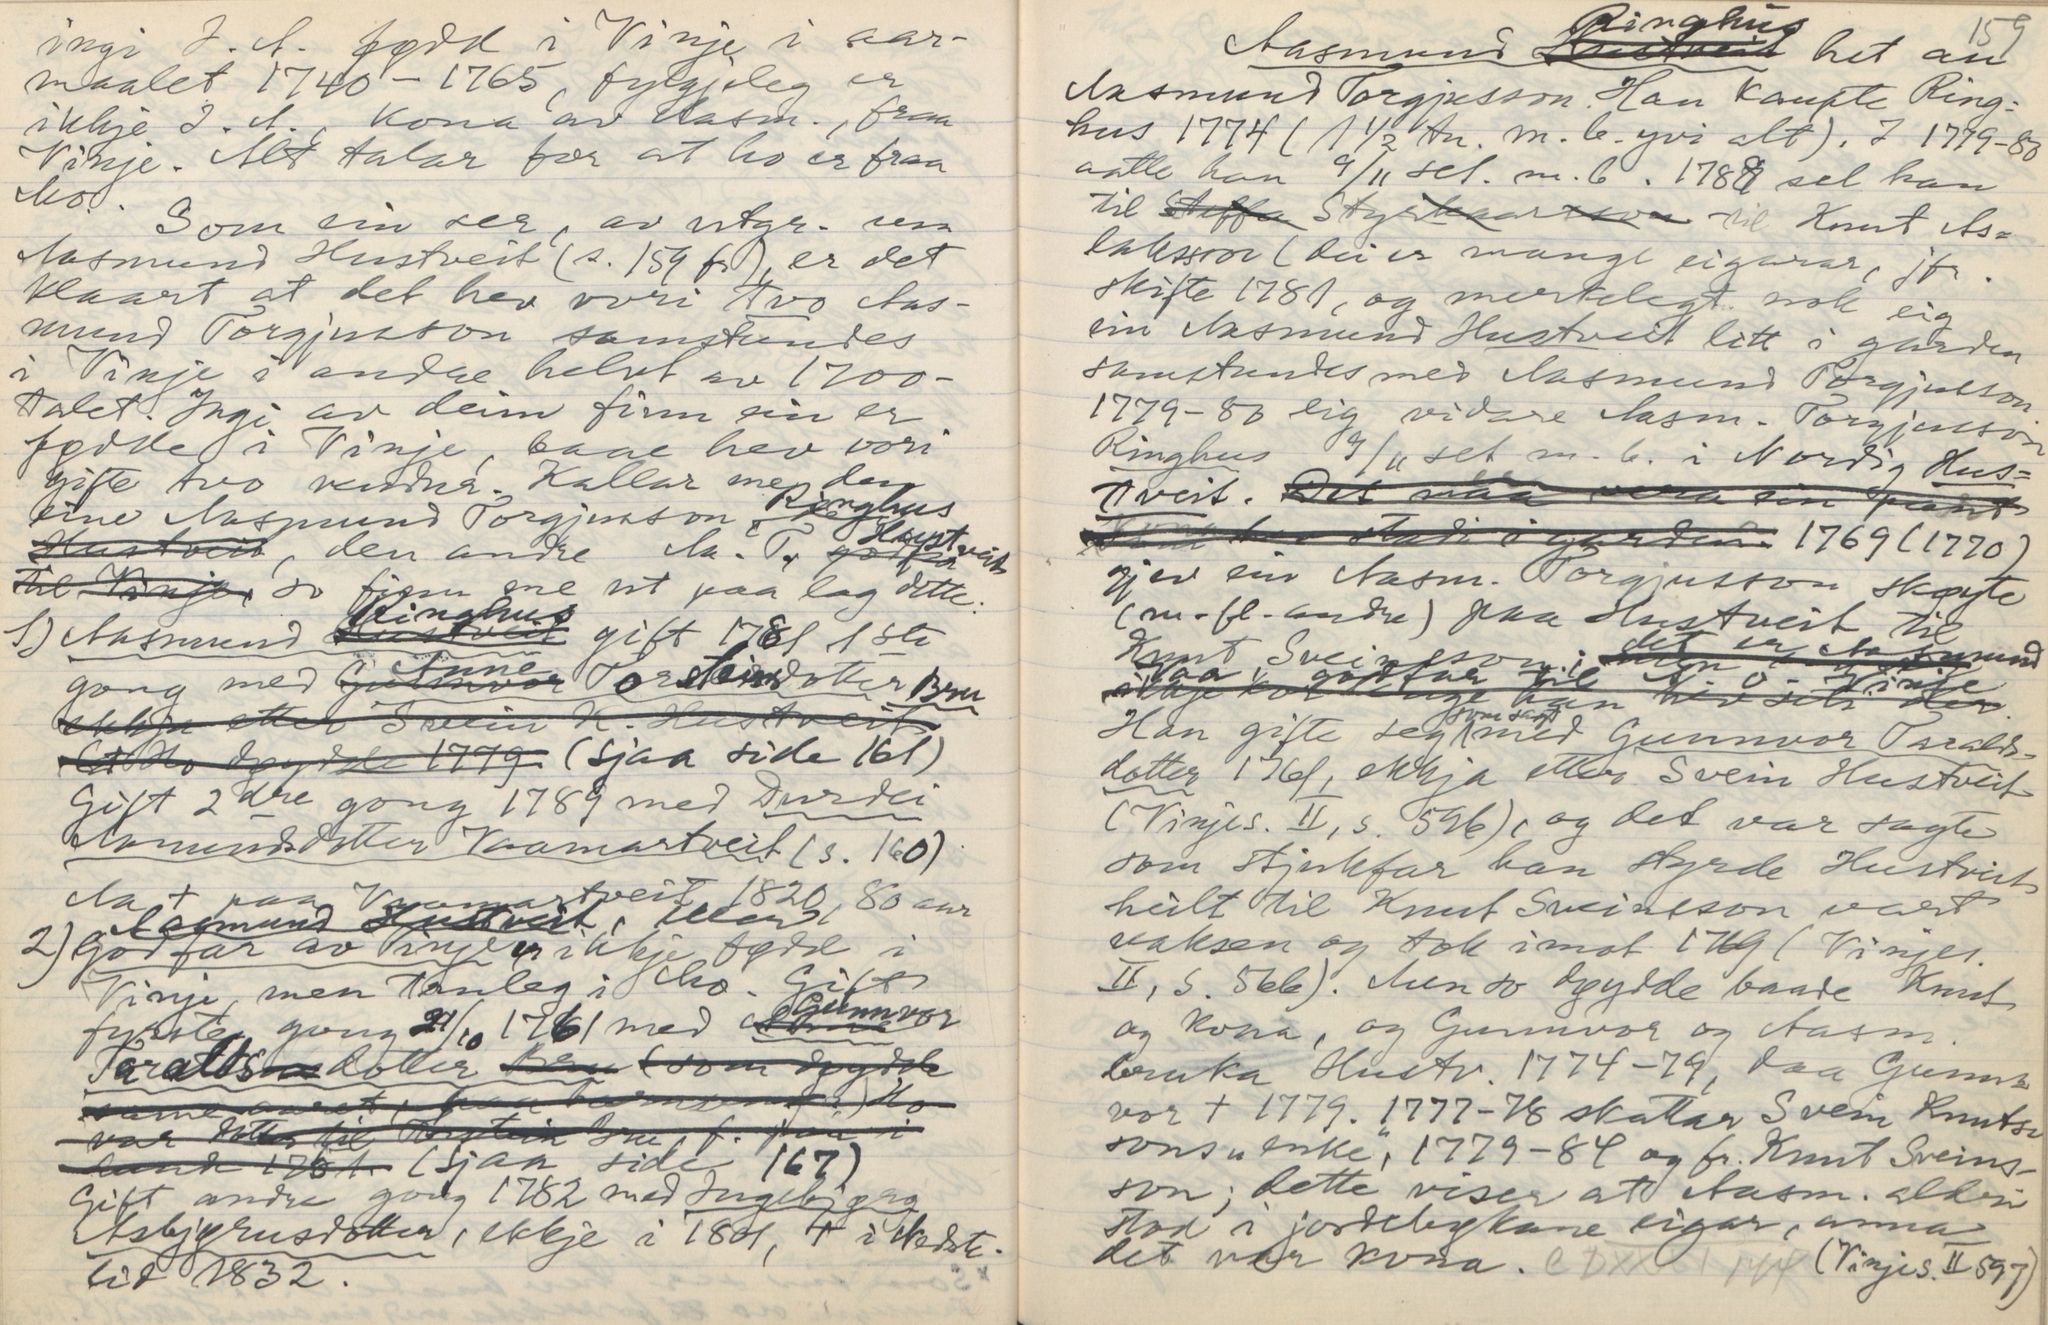 ingi I. A. fødd i Vinje i aar-
maalet 1740-1765, fylgjeleg er
ikkje I. A., kona av Aasm., fraa
Vinje. Alt talar for at ho er fraa
Mo.
Som ein ser, av utgr. um
Aasmund Hustveit (s. 159 fr), er det
klaart at det hev vori tvo Aas-
mund Torgjusson samstundes
i Vinje i andre helvt av 1700-
talet. Ingi av deim finn ein er
fødde i Vinje, baae hev vori
gifte tvo vendur. Kallar me den
eine Aasmund Torgjusson Ringhus
Hustveit, den andre Aa. T. Hustveit
til Vinje, so finn me ut paa lag dette:
1) Aasmund Ringhus Hustveit gift 1781 1ste
gong med Gunnvor Anne Torsteinsdotter Bru
ekkja etter Svein K. Hustveit
Ho døydde 1779 (sjaa side 161)
Gift 2dre gong 1789 med Durdei
Aamundsdotter Vaamartveit (s. 160)
Aa † paa Vaamartveit 1820, 80 aar
Aasmund Hustveit,
2) Godfar av Vinje, er ikkje fødd i
Vinje, men truleg i Mo. Gift
fyrste gong 21/10 1761 med Gunnvor
Taraldsdotter Bru (som døydde
same aaret, paa barnseng?) Ho
var dotter til Torstein Bru, f.
(sjaa side 167)
Gift andre gong 1782 med Ingebjørg
Asbjørnsdotter, ekkje i 1801, † i Nedste-
lid 1832.
159
Ringhus
Aasmund Hustveit het an
Aasmund Torgjusson. Han kaupte Ring-
hus 1774 (1 1/2 tn. m. b. yvi alt). I 1779-80
aatte han 9/11 set. m. b. 1789 sel han
til Steffa Styrkaarsson til Knut As-
laksson (dei er mange eigarar, jfr.
skifte 1781, og merkelegt nok eig
ein Aasmund Hustveit litt i garden
samstundes med Aasmund Torgjusson.
1779-80 eig vidare Aasm. Torgjusson
Ringhus 9/11 set m. b. i Nordig Hus-
tveit. Det maa vera ein pant
han hev stadi i garden. 1769 (1770)
gjev ein Aasm. Torgjusson skøyte
(m. fl. andre) paa Hustveit til
Knut Sveinsson; det er Aasmund
godfar til A. O. Vinje
ikkje kor lenge han hev seti der.
Han gifte seg som sagt med Gunnvor Taralds-
dotter 1761, ekkja etter Svein Hustveit
(Vinjes. II, s. 596), og det var sagte
som stjukfar han styrde Hustveit
heilt til Knut Sveinsson vart
vaksen og tok imot 1769 (Vinjes.
II, s. 566). Men so døydde baade Knut
og kona, og Gunnvor og Aasm.
bruka Hustv. 1774-79, daa Gunn-
vor † 1779. 1777-78 skattar Svein Knuts-
sons "enke", 1779-84 og fr. Knut Sveins-
son; dette viser at Aasm. aldri
stod i jordebøkane eigar, anna
det var kona. (Vinjes. II 597)